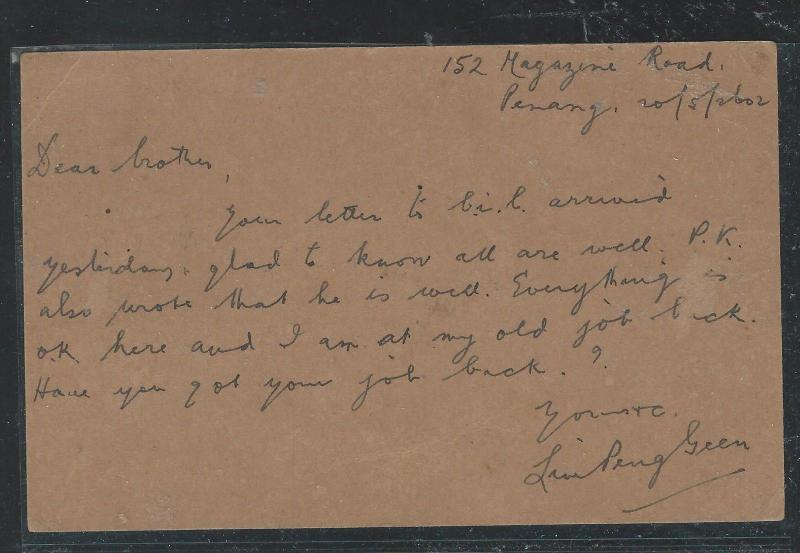 152 Magazine Road.
Penang. 20/5/2602
Dear brother,
Your letter to b.i.l. arrived
yesterday, glad to know all are well. P.K.
also wrote that he is well. Everything is
o.k. here and I am at my old job back.
Have you got your job back. ?
Yours etc.
Lim Peng Geen